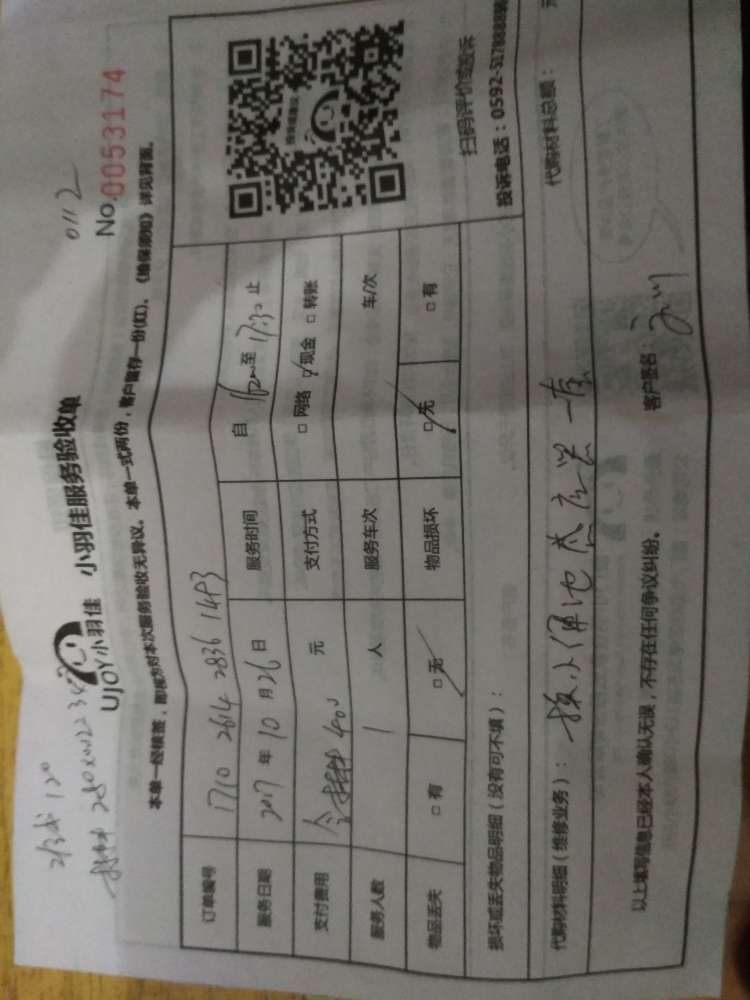 0112
No.0053174
UJOY小羽佳 小羽佳服务验收单
本单一经核签，即视为对本次服务验收无异议。本单一式两份，客户留存一份(红)。《维保须知》详见背面。
订单编号 1710 2614 2836 1493
服务日期 2017 年 10 月 26 日 服务时间 自 至 17:30 止
支付费用 400 元 支付方式 □ 网络 □ 现金 □ 转账
服务人数 1 人 服务车次 车/次
物品丢失 □ 有 □ 无 物品损坏 □ 无 □ 有
扫码评价或投诉
投诉电话：0592-5178888转
损坏或丢失物品明细（没有可不填）：
代购材料明细（维修业务）： 换小便池感应器一套 代购材料总额：
以上填写信息已经本人确认无误，不存在任何争议纠纷。 客户签名：